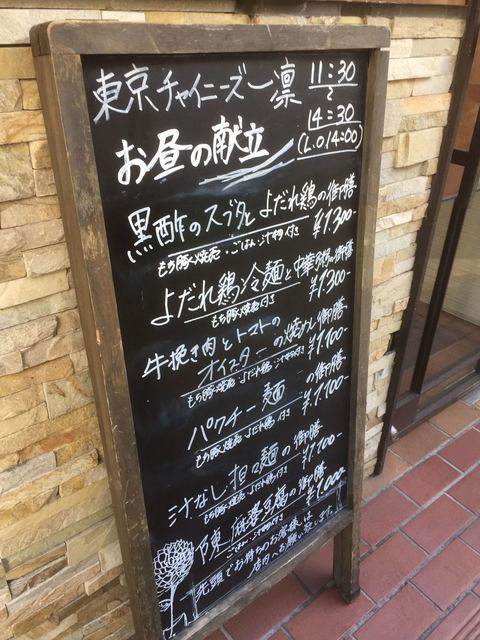 東京チャイニーズ一凛
11:30
〜
14:30
(L.O14:00)
お昼の献立
黒酢のスブタとよだれ鶏の御膳
もち豚焼売・ごはん・汁物付き ¥1,300-
よだれ鶏冷麺と中華粥の御膳
もち豚焼売付き ¥1,300-
牛挽き肉とトマトの
オイスターの焼めし御膳
もち豚焼売・よだれ鶏・汁物付き ¥1,100-
パクチー麺の御膳
もち豚焼売・よだれ鶏付き ¥1,100-
汁なし担々麺の御膳
もち豚焼売・よだれ鶏付き ¥1,100-
陳麻婆豆腐の御膳
ごはん・汁物付き ¥1,000-
先頭でお待ちのお客様は
店内へお願い致します。